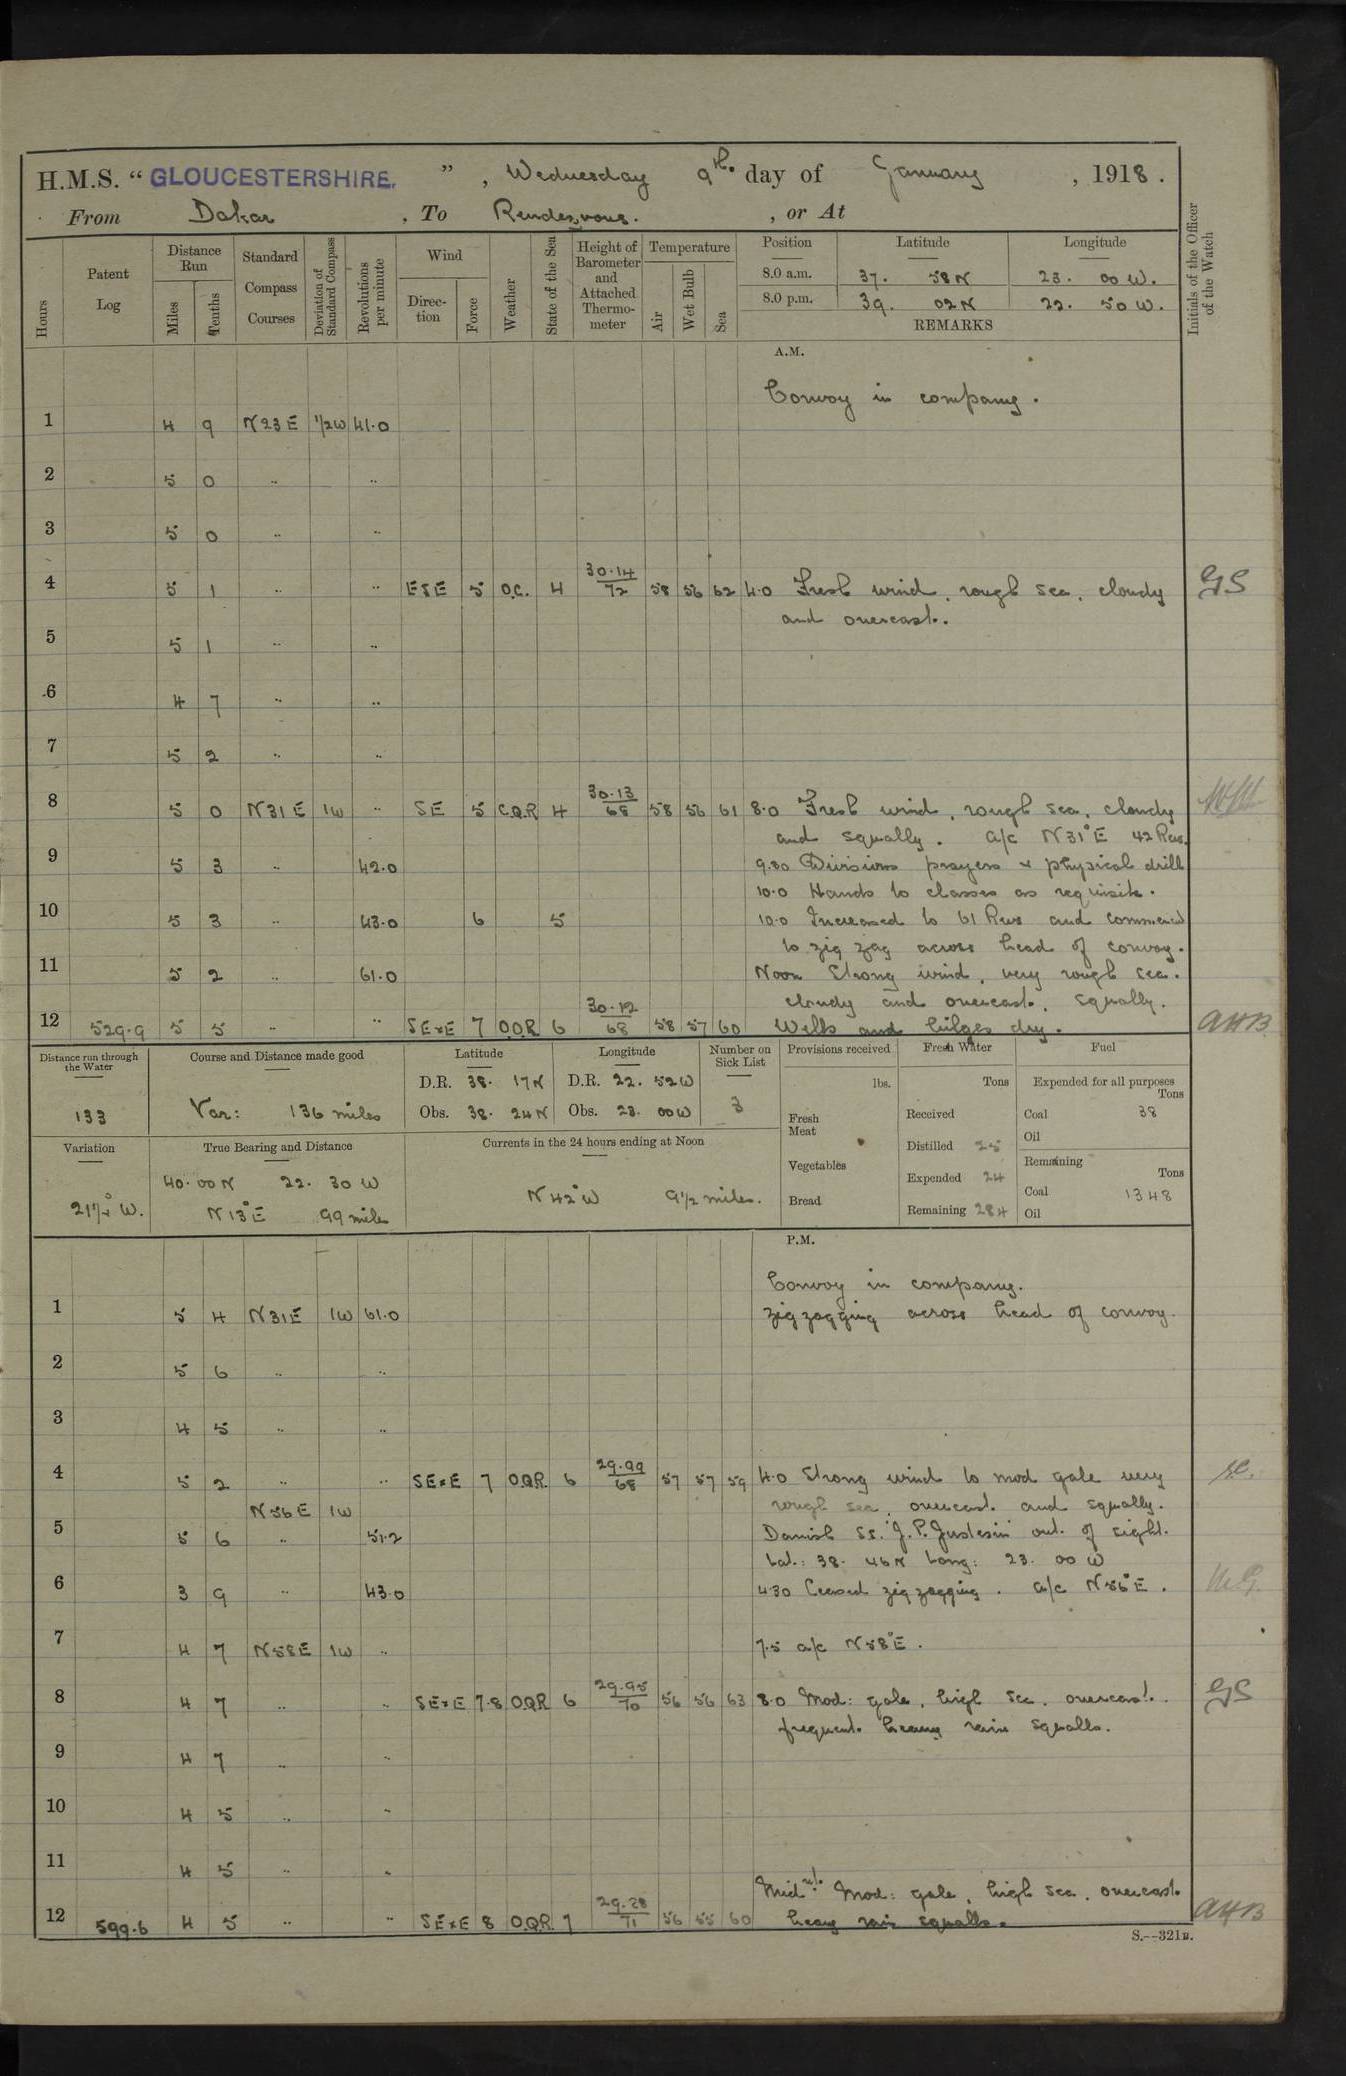 H.M.S. " GLOUCESTERSHIRE. " , Wednesday 9th. day of January , 1918 .
From Dakar , To Rendezvous. , or At
Hours
Patent Log
Distance Run
Miles
Tenths
Standard Compass Courses
Deviation of Standard Compass
Revolutions per minute
Wind
Direction
Force
Weather
State of the Sea
Height of Barometer and Attached Thermometer
Temperature
Air
Wet Bulb
Sea
Position Latitude Longitude
8.0 a.m. 37. 58 N 23. 00 W.
8.0 p.m. 39. 02 N 22. 50 W.
REMARKS
Initials of the Officer of the Watch
A.M.
Convoy in company.
1 4 9 N 23 E 1/2 W 41.0
2 5 0 .. ..
3 5 0 .. ..
4 5 1 .. .. ESE 5 O.C. 4 30.14/72 58 56 62 4.0 Fresh wind, rough sea, cloudy GS
and overcast.
5 5 1 .. ..
6 4 7 .. ..
7 5 2 .. ..
8 5 0 N 31 E 1W .. SE 5 C.Q.R 4 30.13/68 58 56 61 8.0 Fresh wind, rough sea, cloudy
and squally. a/c N 31° E 42 Revs.
9 5 3 .. 42.0 9.30 Divisions prayers & physical drill
10.0 Hands to classes as requisite.
10 5 3 .. 43.0 6 5 10.0 Increased to 61 Revs and commenced
to zig zag across head of convoy.
11 5 2 .. 61.0 Noon Strong wind, very rough sea.
cloudy and overcast, squally.
12 529.9 5 5 .. .. SExE 7 O.Q.R 6 30.12/68 58 57 60 Wells and bilges dry. AHB
Distance run through the Water
133
Course and Distance made good
Var: 136 miles
Latitude
D.R. 38. 17 N
Obs. 38. 24 N
Longitude
D.R. 22. 52 W
Obs. 23. 00 W
Number on Sick List
3
Variation
21 1/4° W.
True Bearing and Distance
40.00 N 22. 30 W
N 13° E 99 miles
Currents in the 24 hours ending at Noon
N 42° W 9 1/2 miles.
Provisions received
lbs.
Fresh Meat
Vegetables
Bread
Fresh Water
Tons
Received
Distilled 25
Expended 24
Remaining 284
Fuel
Expended for all purposes
Tons
Coal 38
Oil
Remaining
Tons
Coal 1348
Oil
P.M.
Convoy in company.
1 5 4 N 31 E 1W 61.0 Zig zagging across head of convoy.
2 5 6 .. ..
3 4 5 .. ..
4 5 2 .. .. SExE 7 O.Q.R. 6 29.99/68 57 57 59 4.0 Strong wind to mod gale very
N 56 E 1W rough sea, overcast and squally.
5 5 6 .. 51.2 Danish SS. "J.P. Justesin" out of sight.
Lat: 38. 46 N Long: 23. 00 W
6 3 9 .. 43.0 4.30 Ceased zig zagging. a/c N 56° E.
7 4 7 N 58 E 1W .. 7.5 a/c N 58° E.
8 4 7 .. .. SExE 7.8 O.Q.R 6 29.95/70 56 56 63 8.0 Mod: gale, high sea, overcast. GS
frequent heavy rain squalls.
9 4 7 .. ..
10 4 5 .. ..
11 4 5 .. ..
Midnt. Mod: gale, high sea, overcast
12 599.6 4 5 .. .. SExE 8 O.Q.R. 7 29.28/71 56 55 60 heavy rain squalls. AHB
S.--321B.